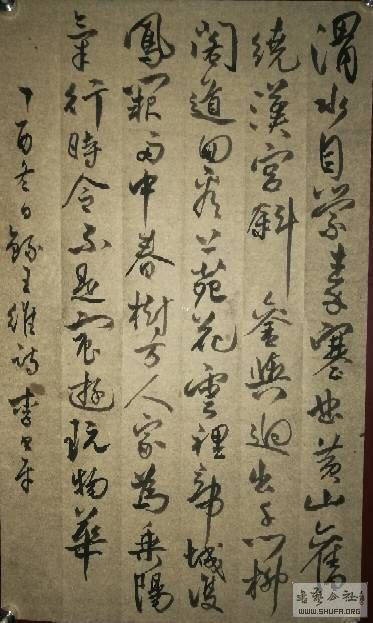 渭水自縈秦塞曲黃山舊
繞漢宮斜鑾輿迥出千门柳
閣道回看上苑花雲裡帝城雙
鳳闕雨中春樹万人家為乘陽
氣行時令不是宸遊玩物華
丁酉冬日錄王維詩李年
書藝公社
WWW.SHUFA.ORG